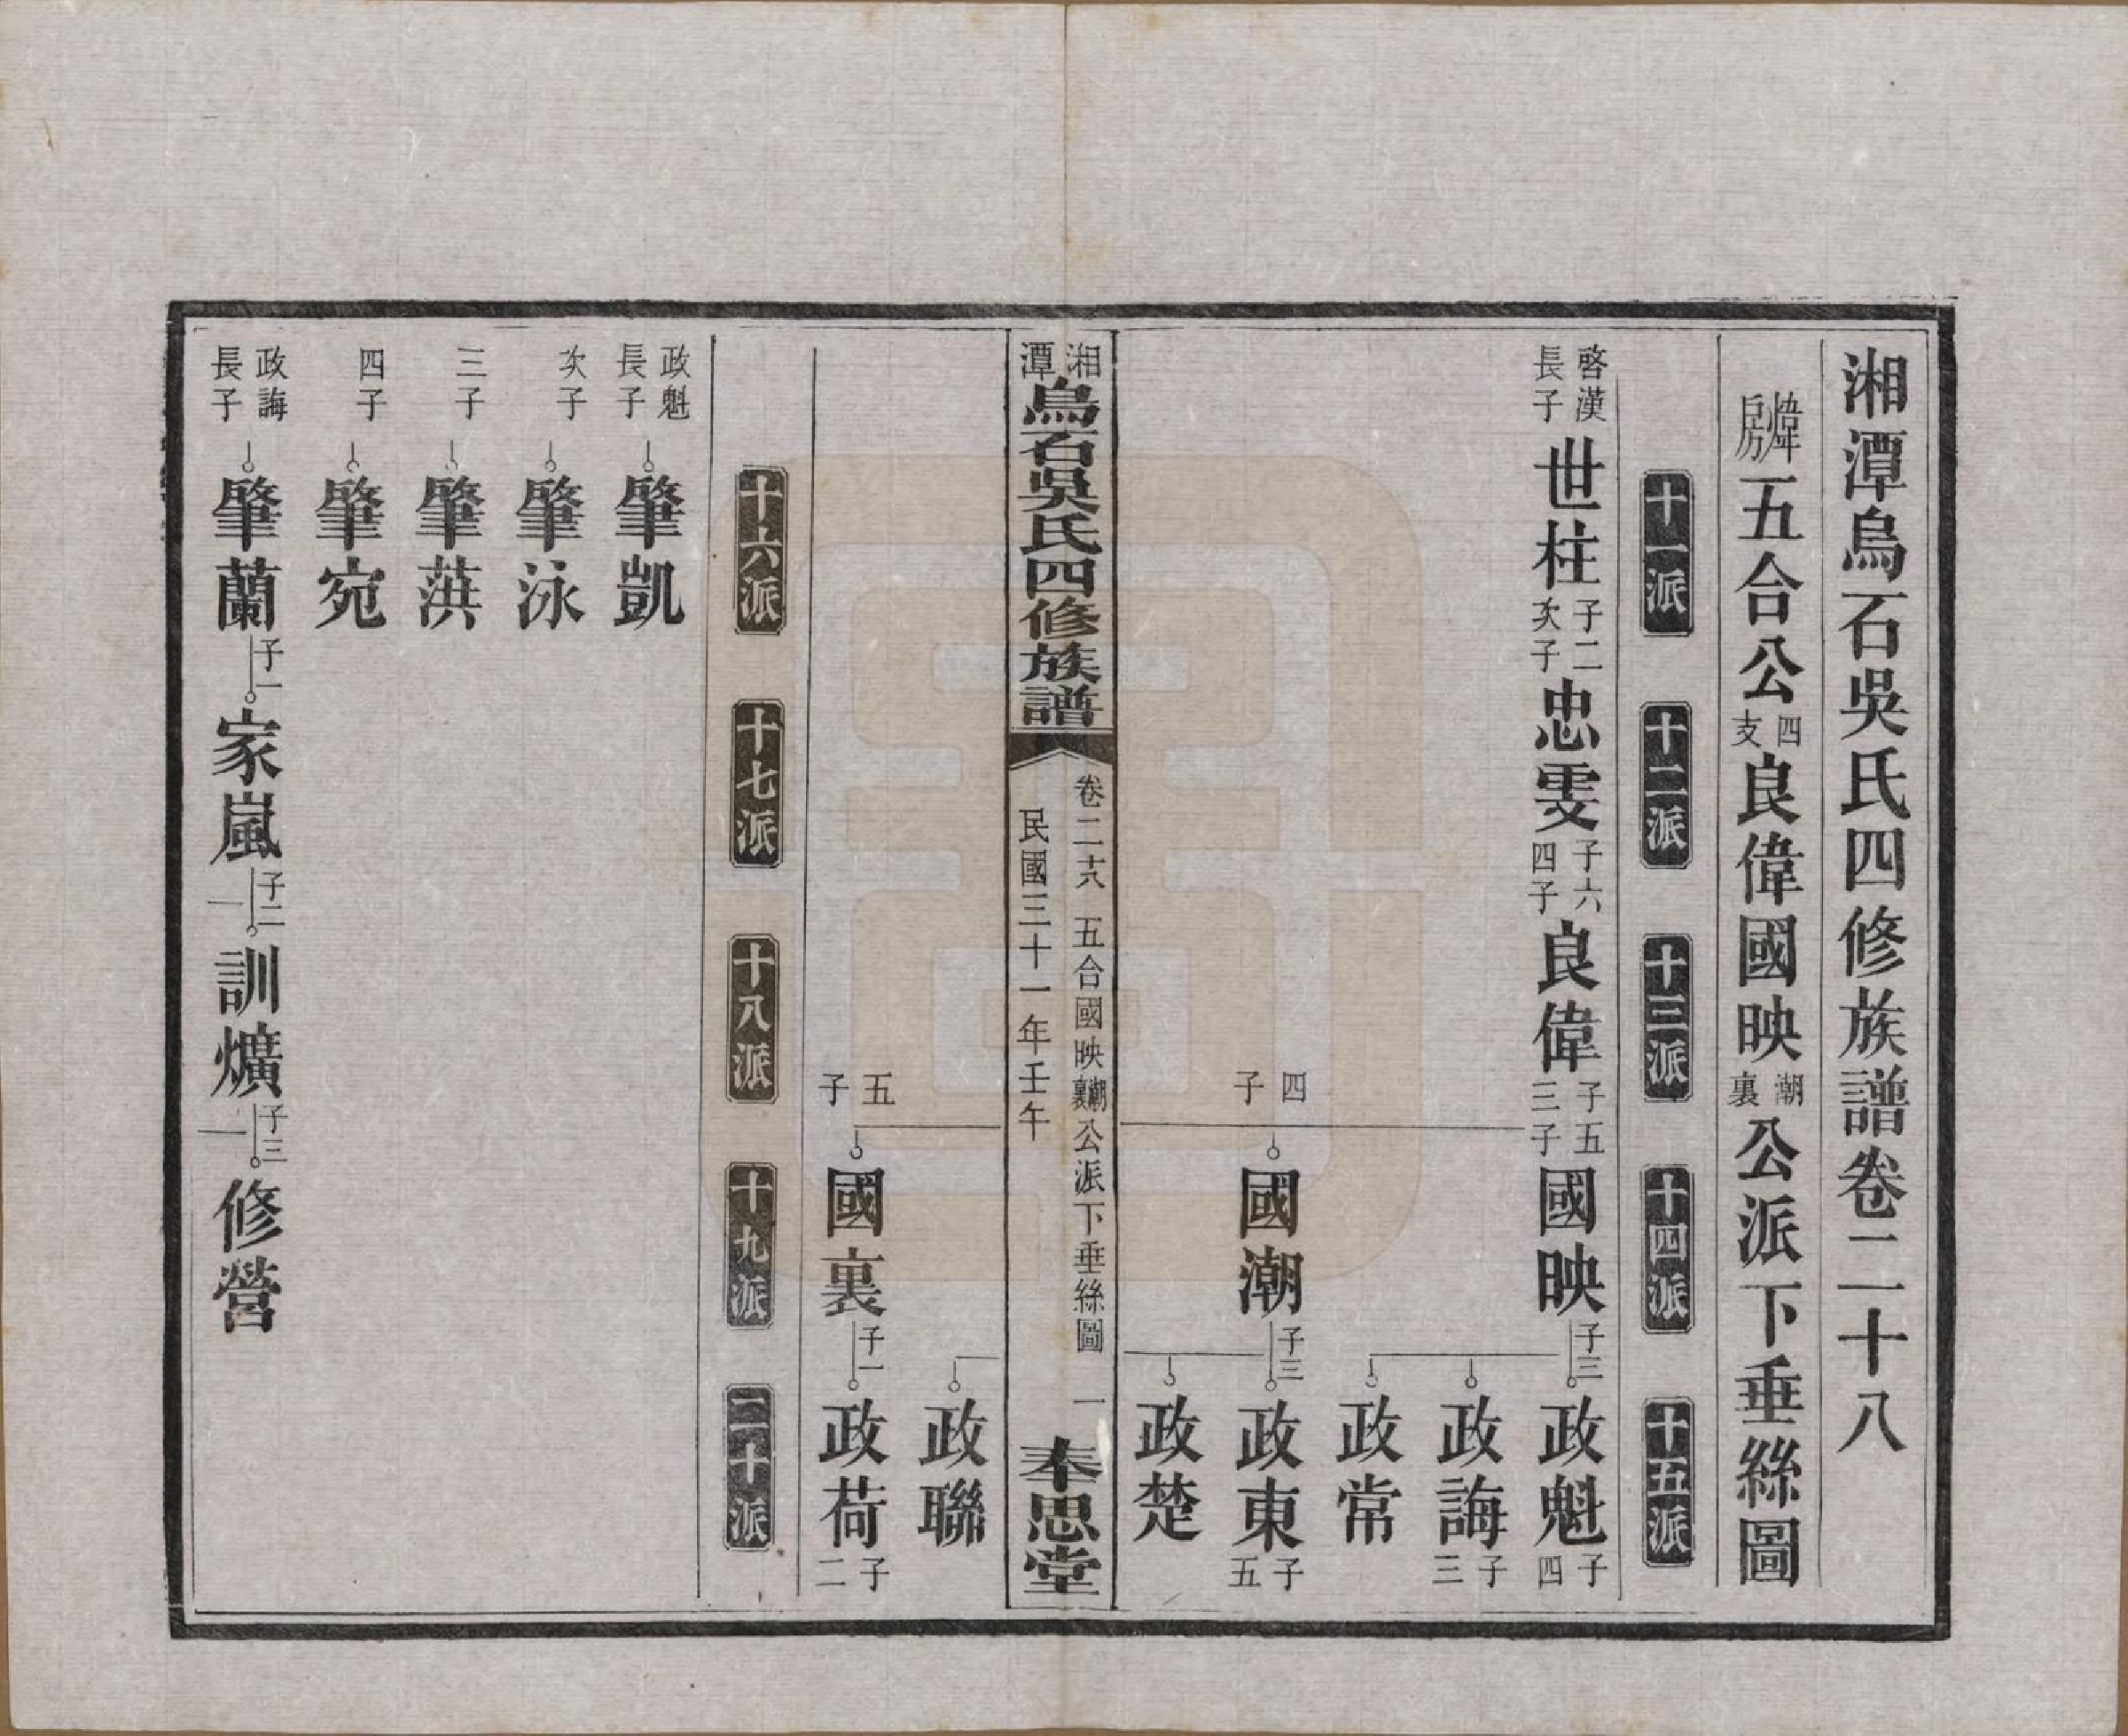 湘潭烏石吳氏四修族譜卷二十八
煒房五合公四支良偉國映潮裏公派下垂絲圖
十一派 十二派 十三派 十四派 十五派
啓漢長子 世柱 子二次子 忠雯 子六四子 良偉 子五三子 國映 子三 政魁 子四
政誨 子三
政常
四子 國潮 子三 政東 子五
政楚
湘潭烏石吳氏四修族譜 卷二十八 五合國映潮裏公派下垂絲圖 一 奉思堂
民國三十一年壬午
政聯
五子 國裏 子一 政荷 子二
十六派 十七派 十八派 十九派 二十派
政魁長子 肇凱
次子 肇泳
三子 肇葓
四子 肇宛
政誨長子 肇蘭 子一 家嵐 子二一 訓爌 子三一 修營